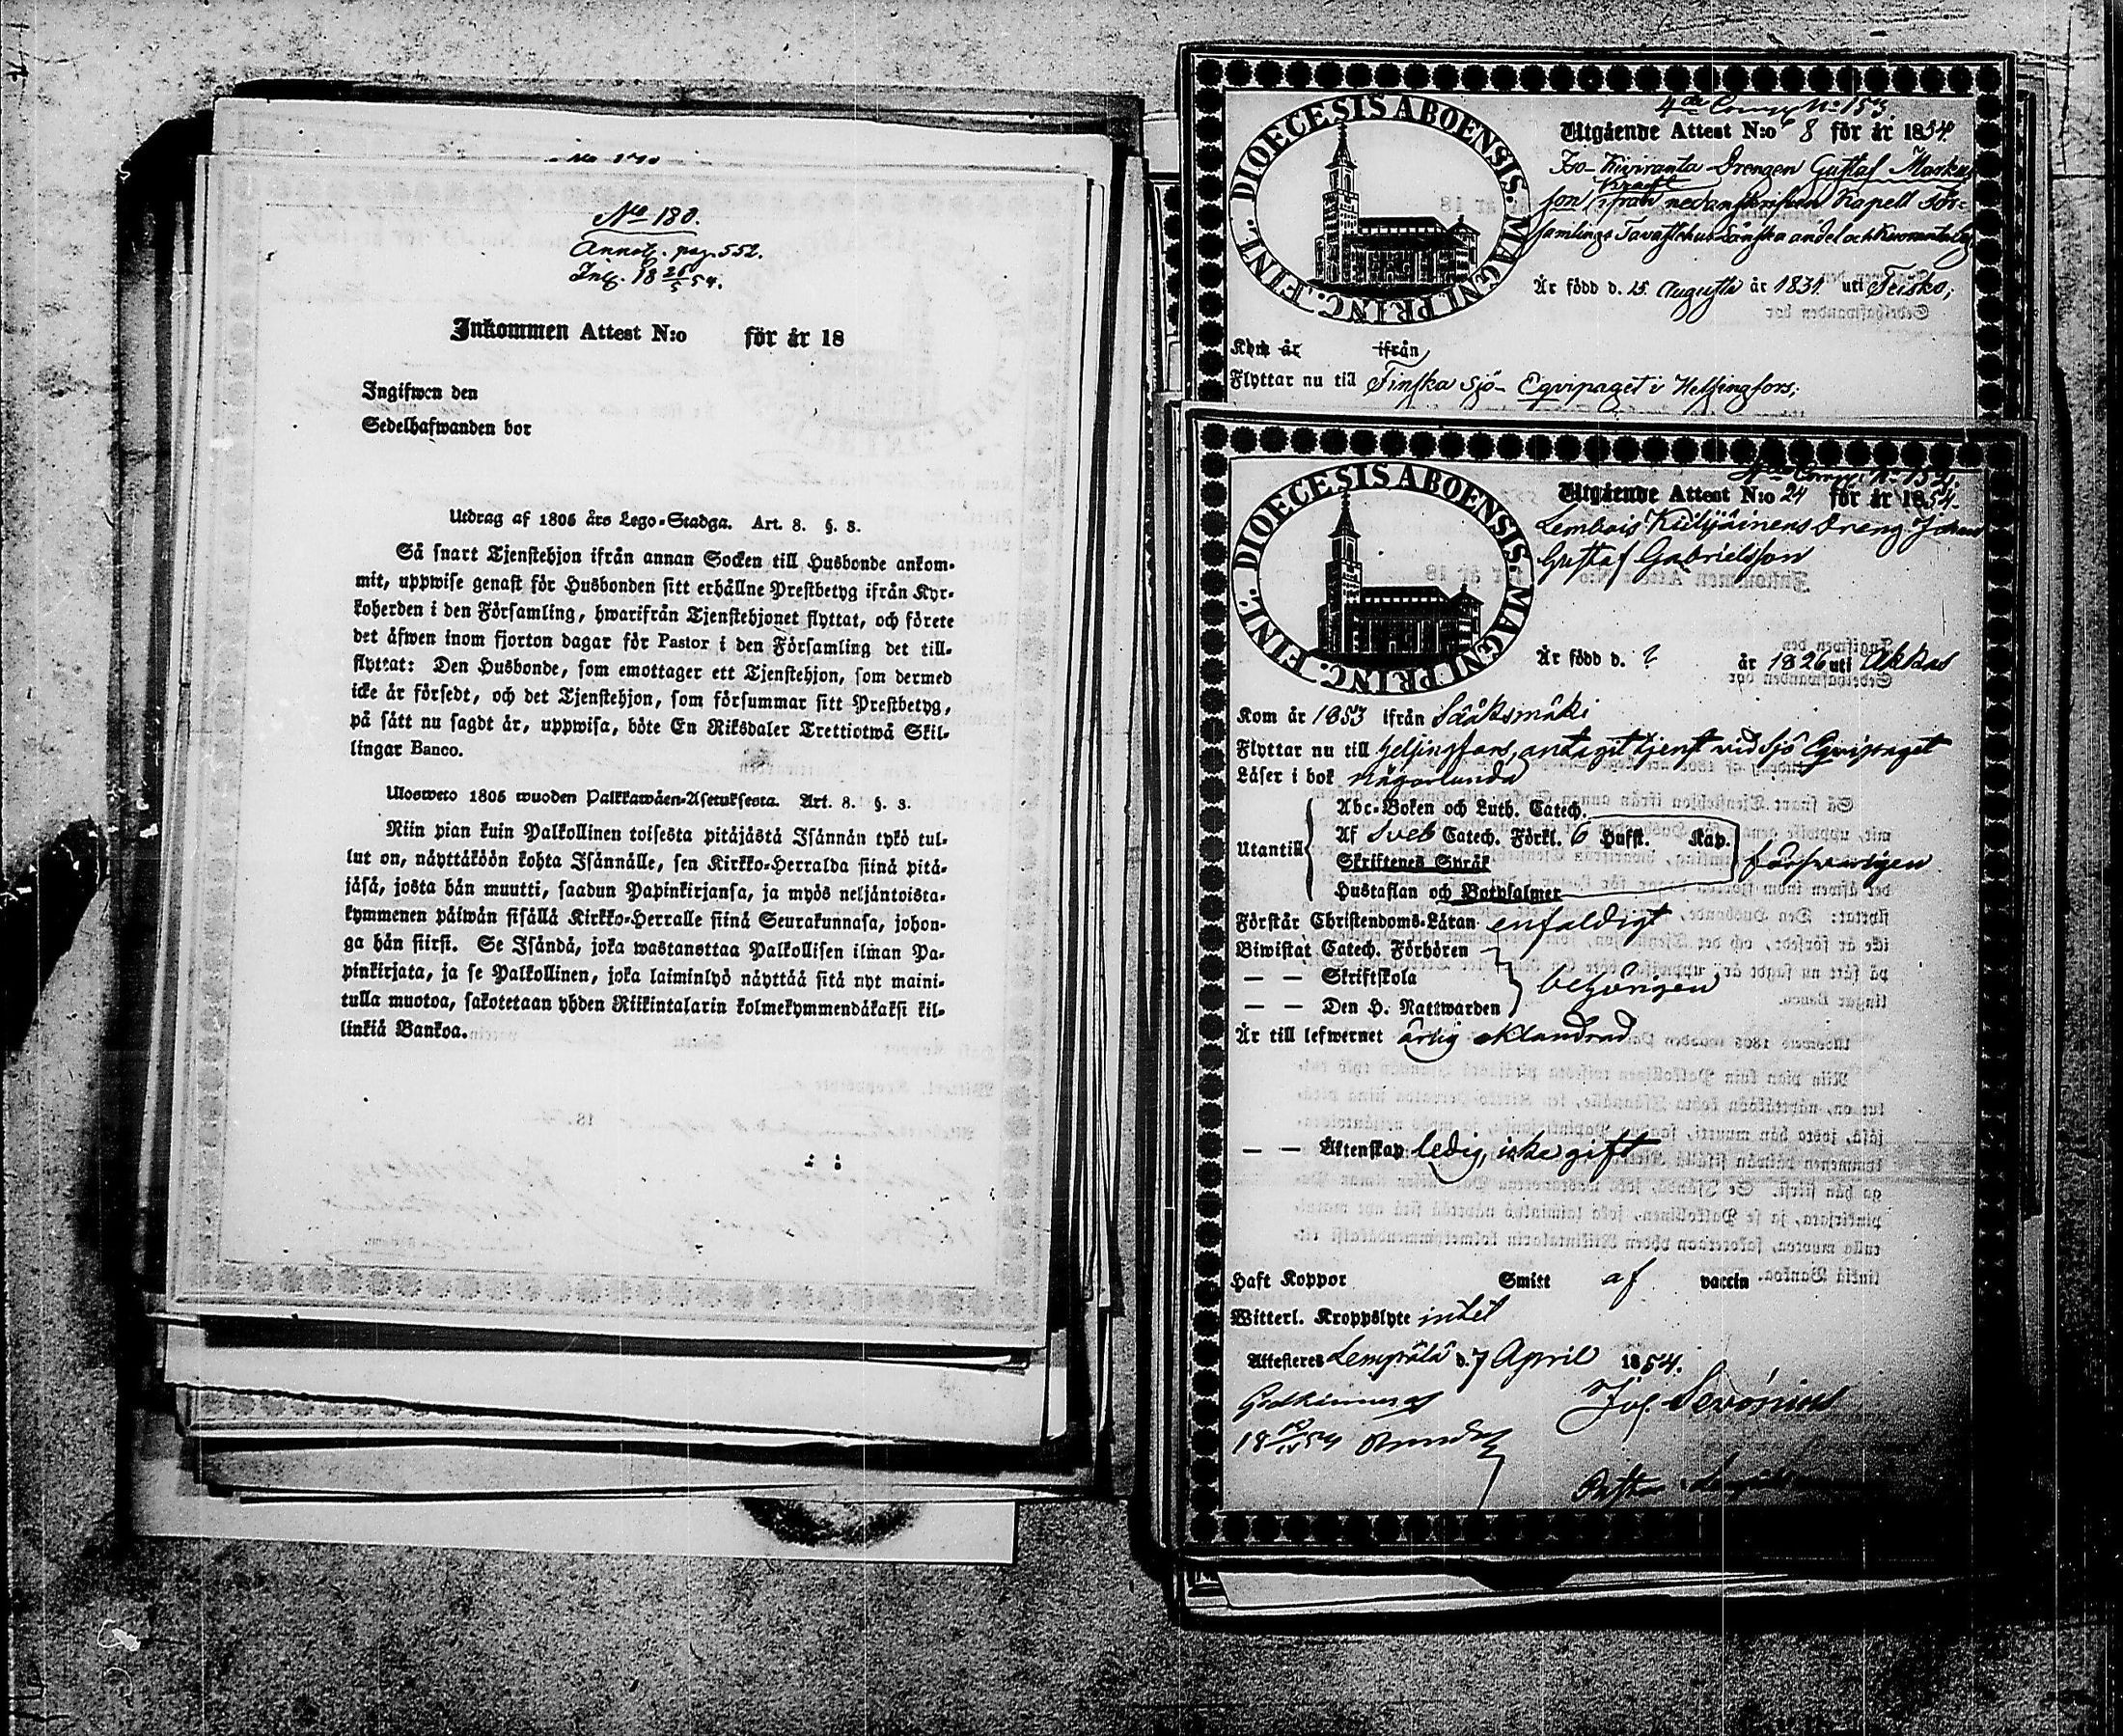 No 180.
Annot. pag. 552.
Inlg. 18 26/5 54.
Inkommen Attest N:o för år 18
Ingifwen den
Sedelhafwanden bor
Utdrag af 1805 års Lego-Stadga. Art. 8. §. 3.
Så snart Tjenstehjon ifrån annan Socken till Husbonde ankom-
mit, uppwise genast för Husbonden sitt erhållne Prestbetyg ifrån Kyr-
koherden i den Församling, hwarifrån Tjenstehjonet flyttat, och förete
det äfwen inom fjorton dagar för Pastor i den Församling det till-
flyttat: Den Husbonde, som emottager ett Tjenstehjon, som dermed
icke är försedt, och det Tjenstehjon, som försummar sitt Prestbetyg,
på sätt nu sagdt är, uppwisa, böte En Riksdaler Trettiotwå Skil-
lingar Banco.
Ulosweto 1805 wuoden Palkkawäen-Asetuksesta. Art. 8. §. 3.
Niin pian kuin Palkollinen toisesta pitäjästä Isännän tykö tul-
lut on, näyttäköön kohta Isännälle, sen Kirkko-Herralda siinä pitä-
jäsä, josta hän muutti, saadun Papinkirjansa, ja myös neljäntoista-
kymmenen päiwän sisällä Kirkko-Herralle siinä Seurakunnasa, johon-
ga hän siirsi. Se Isändä, joka wastanottaa Palkollisen ilman Pa-
pinkirjata, ja se Palkollinen, joka laiminlyö näyttää sitä nyt maini-
tulla muotoa, sakotetaan yhden Riikintalarin kolmekymmendäkaksi kil-
linkiä Bankoa.
4de Comp. No 153.
DIOECESIS ABOENSIS. MAGNI PRINC. FINL.
Utgående Attest N:o 8 för år 1854.
Iso-Kiviranta Drengen Gustaf Markus
son ifrån nedanskrifven Kapell För-
samlings Tavastehus Länska andel och
Är född d. 15 Augusti år 1831 uti Teisko;
Kom år ifrån
Flyttar nu till Finska Sjö-Eqvipaget i Helsingfors;
4de Comp. No 154.
DIOECESIS ABOENSIS. MAGNI PRINC. FINL.
Utgående Attest N:o 24 för år 1854.
Lembois Kuljuinens Dreng Johan
Gustaf Gabrielsson
Är född d. ? år 1826 uti Akkas
Kom år 1853 ifrån Sääksmäki
Flyttar nu till Helsingfors, antagit tjenst vid Sjö Eqvipaget
Läser i bok någorlunda
Abc-Boken och Luth. Catech.
Utantill Af Sveb Catech. Förkl. 6 Hufst. Kap. försvarligen
Skriftenes Språk
Hustaflan och Botpsalmer
Förstår Christendoms-Läran enfaldigt
Biwistat Catech. Förhören
— — Skriftskola behörigen
— — Den H. Nattwarden
Är till lefwernet ärlig oklandrad
— — Äktenskap ledig, icke gift
Haft Koppor Smitt af vaccin
Witterl. Kroppslyte intet
Attesteres Lempäälä d. 7 April 1854.
Godkännes
Jos. Sevonius